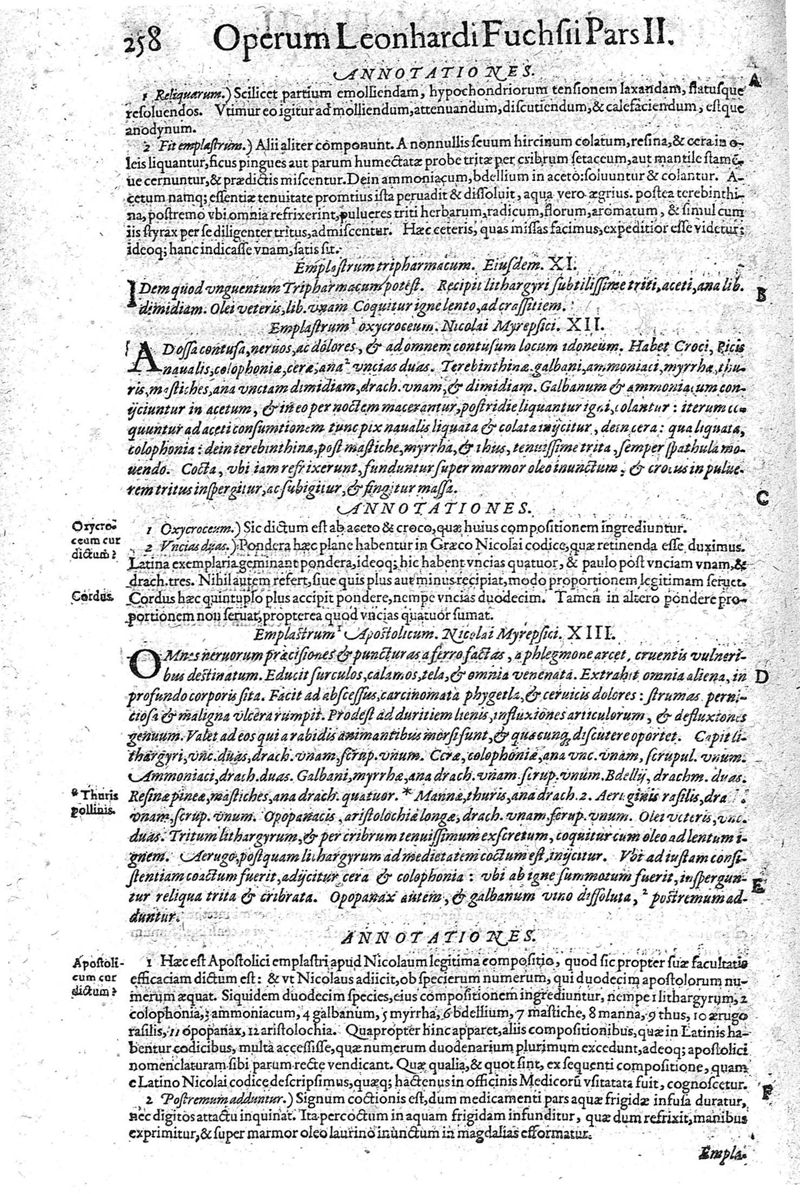 258 Operum Leonhardi Fuchsii Pars II.
ANNOTATIONES.
A
1 Reliquarum.) Scilicet partium emolliendam, hypochondriorum tensionem laxandam, flatusque
resoluendos. Vtimur eo igitur ad molliendum, attenuandum, discutiendum, & calefaciendum, estque
anodynum.
2 Fit emplastrum.) Alii aliter componunt. A nonnullis seuum hircinum colatum, resina, & cera in o-
leis liquantur, ficus pingues aut parum humectatæ probe tritæ per cribrum setaceum, aut mantile stamē,
ue cernuntur, & prædictis miscentur. Dein ammoniacum, bdellium in aceto: soluuntur & colantur. A-
cetum namq; essentiæ tenuitate promtius ista peruadit & dissoluit, aqua vero ægrius. postea terebinthi-
na, postremo vbi omnia refrixerint, pulueres triti herbarum, radicum, florum, aromatum, & simul cum
iis styrax per se diligenter tritus, admiscentur. Hæc ceteris, quas missas facimus, expeditior esse videtur:
ideoq; hanc indicasse vnam, satis sit.
Emplastrum tripharmacum. Eiusdem. XI.
IDem quod vnguentum Tripharmacum potest. Recipit lithargyri subtilissime triti, aceti, ana lib.
B
dimidiam. Olei veteris, lib. vnam Coquitur igne lento, ad crassitiem.
Emplastrum¹ oxycroceum. Nicolai Myrepsici. XII.
AD ossa contusa, neruos, ac dolores, & ad omnem contusum locum idoneum. Habet Croci, Picis
naualis, colophoniæ, ceræ, ana² vncias duas. Terebinthinæ, galbani, ammoniaci, myrrhæ, thu-
ris, mastiches, ana vnciam dimidiam, drach. vnam, & dimidiam. Galbanum & ammoniacum con-
ijciuntur in acetum, & in eo per noctem macerantur, postridie liquantur igni, colantur: iterum co-
quuntur ad aceti consumtionem tunc pix naualis liquata & colata inijcitur, dein cera: qua liquata,
colophonia: dein terebinthina, post mastiche, myrrha, & thus, tenuissime trita, semper spathula mo-
uendo. Cocta, vbi iam refrixerunt, funduntur super marmor oleo inunctum, & crocus in pulue-
rem tritus inspergitur, ac subigitur, & fingitur massa.
C
ANNOTATIONES.
Oxycro-
ceum cur
dictum?
1 Oxycroceum.) Sic dictum est ab aceto & croco, quæ huius compositionem ingrediuntur.
2 Vncias duas.) Pondera hæc plane habentur in Græco Nicolai codice, quæ retinenda esse duximus.
Latina exemplaria geminant pondera, ideoq; hic habent vncias quatuor, & paulo post vnciam vnam, &
drach. tres. Nihil autem refert, siue quis plus aut minus recipiat, modo proportionem legitimam seruet.
Cordus.
Cordus hæc quintuplo plus accipit pondere, nempe vncias duodecim. Tamen in altero pondere pro-
portionem non seruat, propterea quod vncias quatuor sumat.
Emplastrum¹ Apostolicum. Nicolai Myrepsici. XIII.
OMnes neruorum præcisiones & puncturas a ferro factas, a phlegmone arcet, cruentis vulneri-
bus destinatum. Educit surculos, calamos, tela, & omnia venenata. Extrahit omnia aliena, in
D
profundo corporis sita. Facit ad abscessus, carcinomata phygetla, & ceruicis dolores: strumas perni-
ciosa & maligna vlcera rumpit. Prodest ad duritiem lienis, influxiones articulorum, & defluxiones
genuum. Valet ad eos qui a rabidis animantibus morsi sunt, & quæcunq; discutere oportet. Capit li-
thargyri, vnc. duas, drach. vnam, scrup. vnum. Ceræ, colophoniæ, ana vnc. vnam, scrupul. vnum.
Ammoniaci, drach. duas. Galbani, myrrhæ, ana drach. vnam, scrup. vnum. Bdellij, drachm. duas.
* Thuris
pollinis.
Resinæ pineæ, mastiches, ana drach. quatuor. * Mannæ, thuris, ana drach. 2. Aeruginis rasilis, dra
vnam, scrup. vnum. Opopanacis, aristolochiæ longæ, drach. vnam, scrup. vnum. Olei veteris, vnc.
duas. Tritum lithargyrum, & per cribrum tenuissimum excretum, coquitur cum oleo ad lentum i-
gnem. Aerugo, postquam lithargyrum ad medietatem coctum est, inijcitur. Vbi ad iustam consi-
stentiam coactum fuerit, adijcitur cera & colophonia: vbi ab igne summotum fuerit, insperguntur-
E
tur reliqua trita & cribrata. Opopanax autem, & galbanum vino dissoluta, ² postremum ad-
duntur.
ANNOTATIONES.
Apostoli-
cum cur
dictum?
1 Hæc est Apostolici emplastri apud Nicolaum legitima compositio, quod sic propter suæ facultatis
efficaciam dictum est: & vt Nicolaus adiicit, ob specierum numerum, qui duodecim apostolorum nu-
merum æquat. Siquidem duodecim species, eius compositionem ingrediuntur, nempe 1 lithargyrum, 2
colophonia, 3 ammoniacum, 4 galbanum, 5 myrrha, 6 bdellium, 7 mastiche, 8 manna, 9 thus, 10 ærugo
rasilis, 11 opopanax, 12 aristolochia. Quapropter hinc apparet, aliis compositionibus, quæ in Latinis ha-
bentur codicibus, multa accessisse, quæ numerum duodenarium plurimum excedunt, adeoq; apostolici
nomenclaturam sibi parum recte vendicant. Quæ qualia, & quot sint, ex sequenti compositione, quam
e Latino Nicolai codice descripsimus, quæq; hactenus in officinis Medicorū vsitata fuit, cognoscetur.
F
2 Postremum adduntur.) Signum coctionis est, dum medicamenti pars aquæ frigidæ infusa duratur,
nec digitos attactu inquinat. Ita percoctum in aquam frigidam infunditur, quæ dum refrixit, manibus
exprimitur, & super marmor oleo laurino inunctum in magdalias efformatur.
Empla-